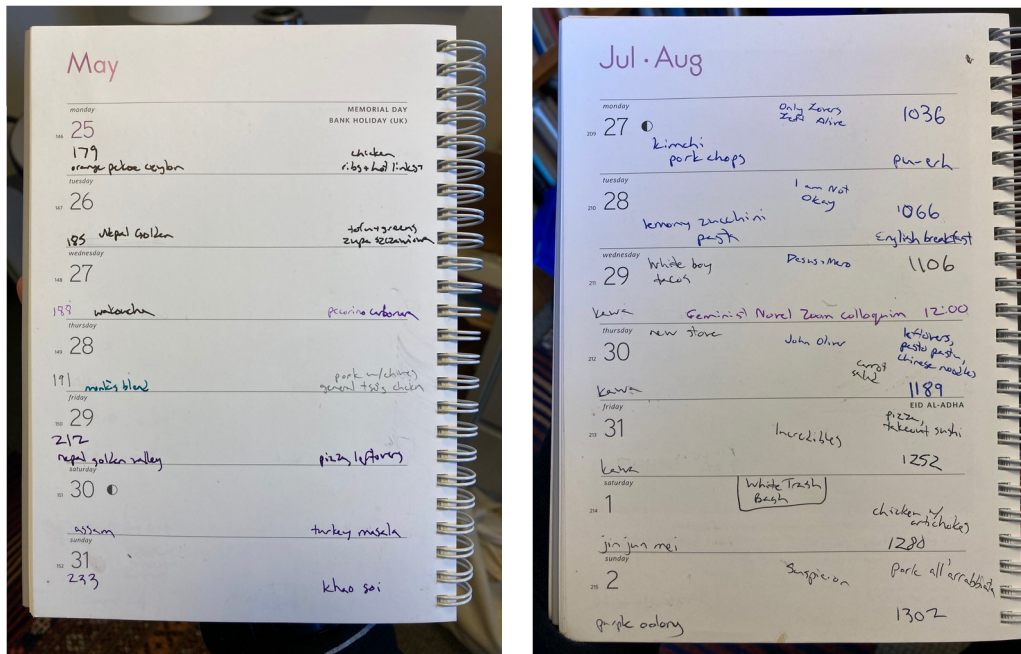 May
monday
MEMORIAL DAY
146 25
BANK HOLIDAY (UK)
179
chicken
orange pekoe ceylon
ribs + hot links
tuesday
147 26
185 Nepal Golden
tofu + greens
zupa szczawiowa
wednesday
148 27
188 wakoucha
pecorino carbonara
thursday
149 28
191 monks blend
pork w/chives
general tso's chicken
friday
150 29
212
nepal golden valley
pizza, leftovers
saturday
151 30
assam
turkey masala
sunday
152 31
233
khao soi
Jul • Aug
monday
209 27
Only Lovers
Left Alive
1036
kimchi
pork chops
pu-erh
tuesday
210 28
I am Not
Okay
1066
lemony zucchini
pasta
English breakfast
wednesday
211 29
White boy
tacos
Desus + Mero
1106
kawa
Feminist Novel Zoom colloquium 12:00
thursday
212 30
new stove
John Oliver
leftovers,
pesto pasta,
chinese noodles
carrot
salad
kawa
1189
friday
EID AL-ADHA
213 31
Incredibles
pizza,
takeout sushi
kawa
1252
saturday
214 1
White Trash
Bash
chicken w/
artichokes
jin jun mei
1280
sunday
215 2
Suspicion
pork all'arrabbiata
purple oolong
1302